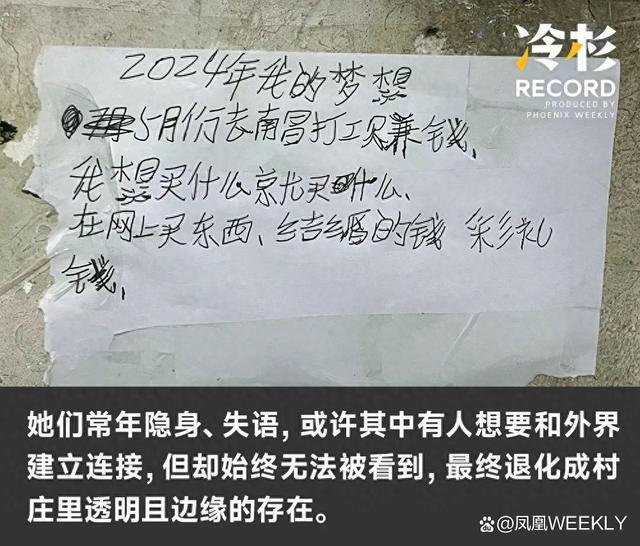 冷杉
RECORD
PRODUCED BY
PHOENIX WEEKLY
2024年我的梦想
5月份去南昌打工赚钱、
我想买什么就买什么、
在网上买东西、结婚的钱 彩礼
钱、
她们常年隐身、失语，或许其中有人想要和外界
建立连接，但却始终无法被看到，最终退化成村
庄里透明且边缘的存在。
@凤凰WEEKLY